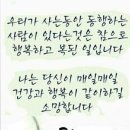 우리가 사는동안 동행하는
사람이 있다는것은 참으로
행복하고 복된 일입니다
나는 당신이 매일매일
건강과 행복이 같이하길
소망합니다